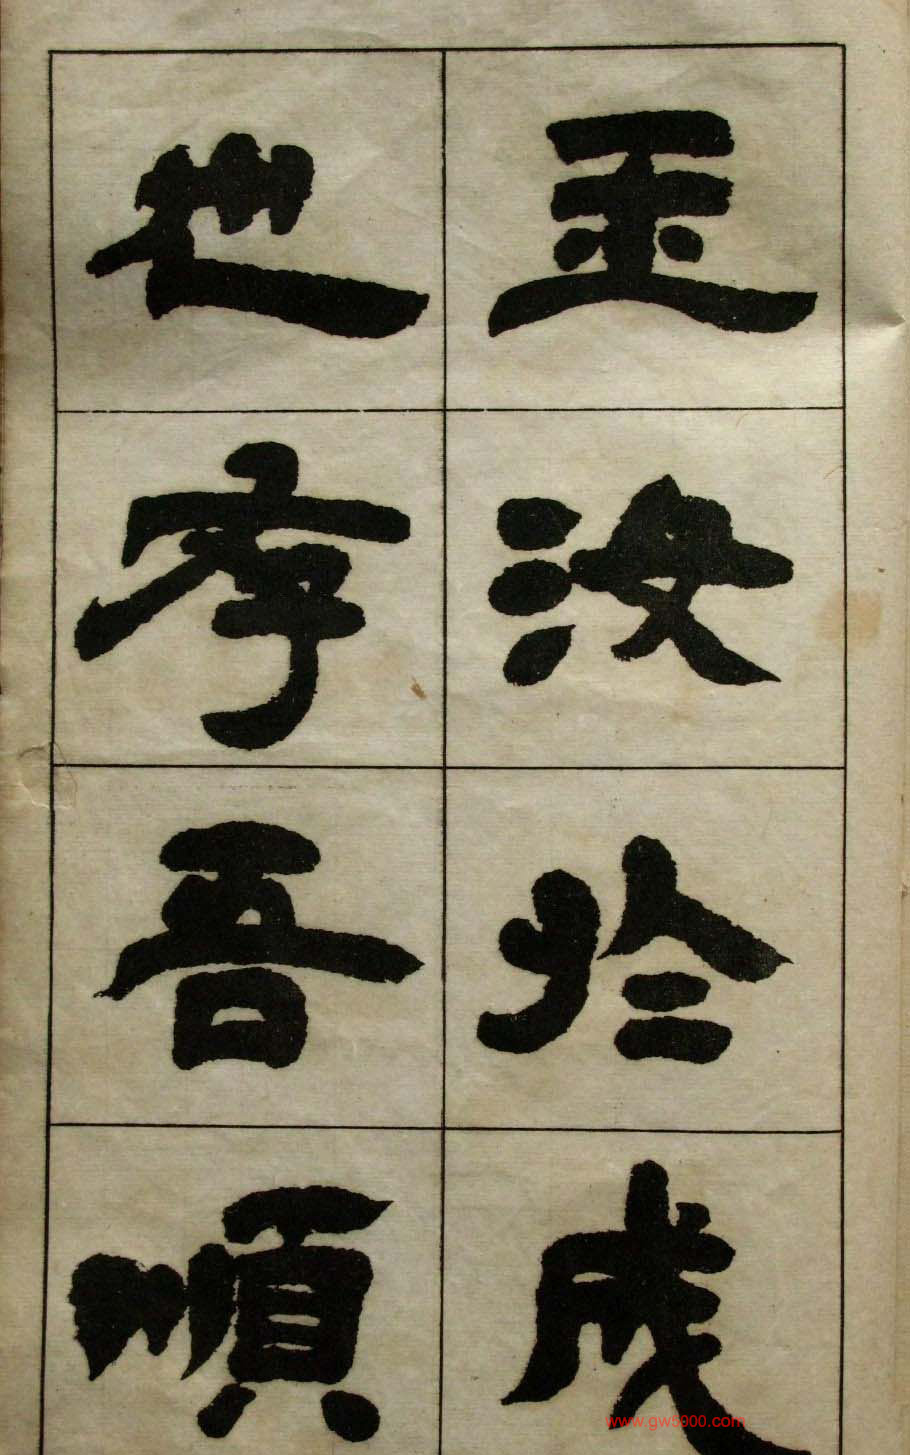 玉汝於成
也存吾順
www.gw5900.com